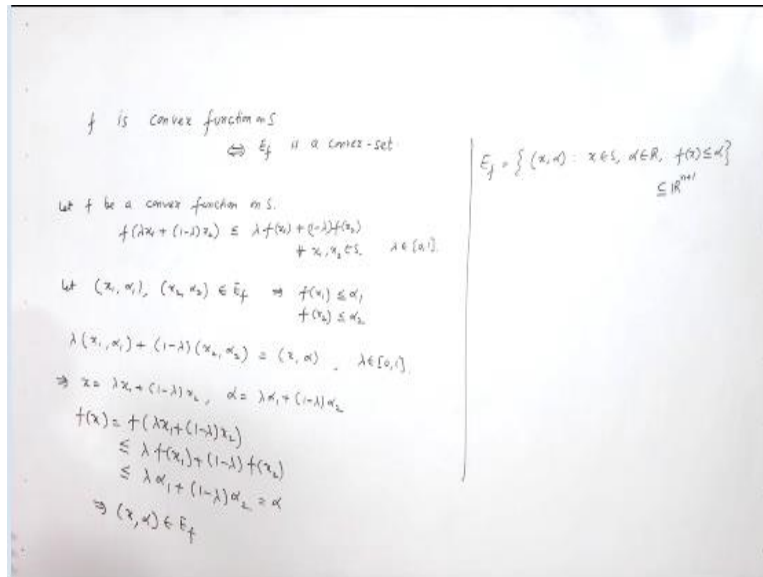 f is convex function on S
⇔ E_f is a convex-set.
Let f be a convex function on S.
f(λx₁ + (1-λ)x₂) ≤ λf(x₁) + (1-λ)f(x₂)
∀ x₁, x₂ ∈ S, λ ∈ [0,1].
Let (x₁, α₁), (x₂, α₂) ∈ E_f ⇒ f(x₁) ≤ α₁
f(x₂) ≤ α₂
λ(x₁, α₁) + (1-λ)(x₂, α₂) = (x, α), λ ∈ [0,1].
⇒ x = λx₁ + (1-λ)x₂, α = λα₁ + (1-λ)α₂
f(x) = f(λx₁ + (1-λ)x₂)
≤ λf(x₁) + (1-λ)f(x₂)
≤ λα₁ + (1-λ)α₂ = α
⇒ (x, α) ∈ E_f
E_f = {(x, α) : x ∈ S, α ∈ ℝ, f(x) ≤ α}
⊆ ℝⁿ⁺¹